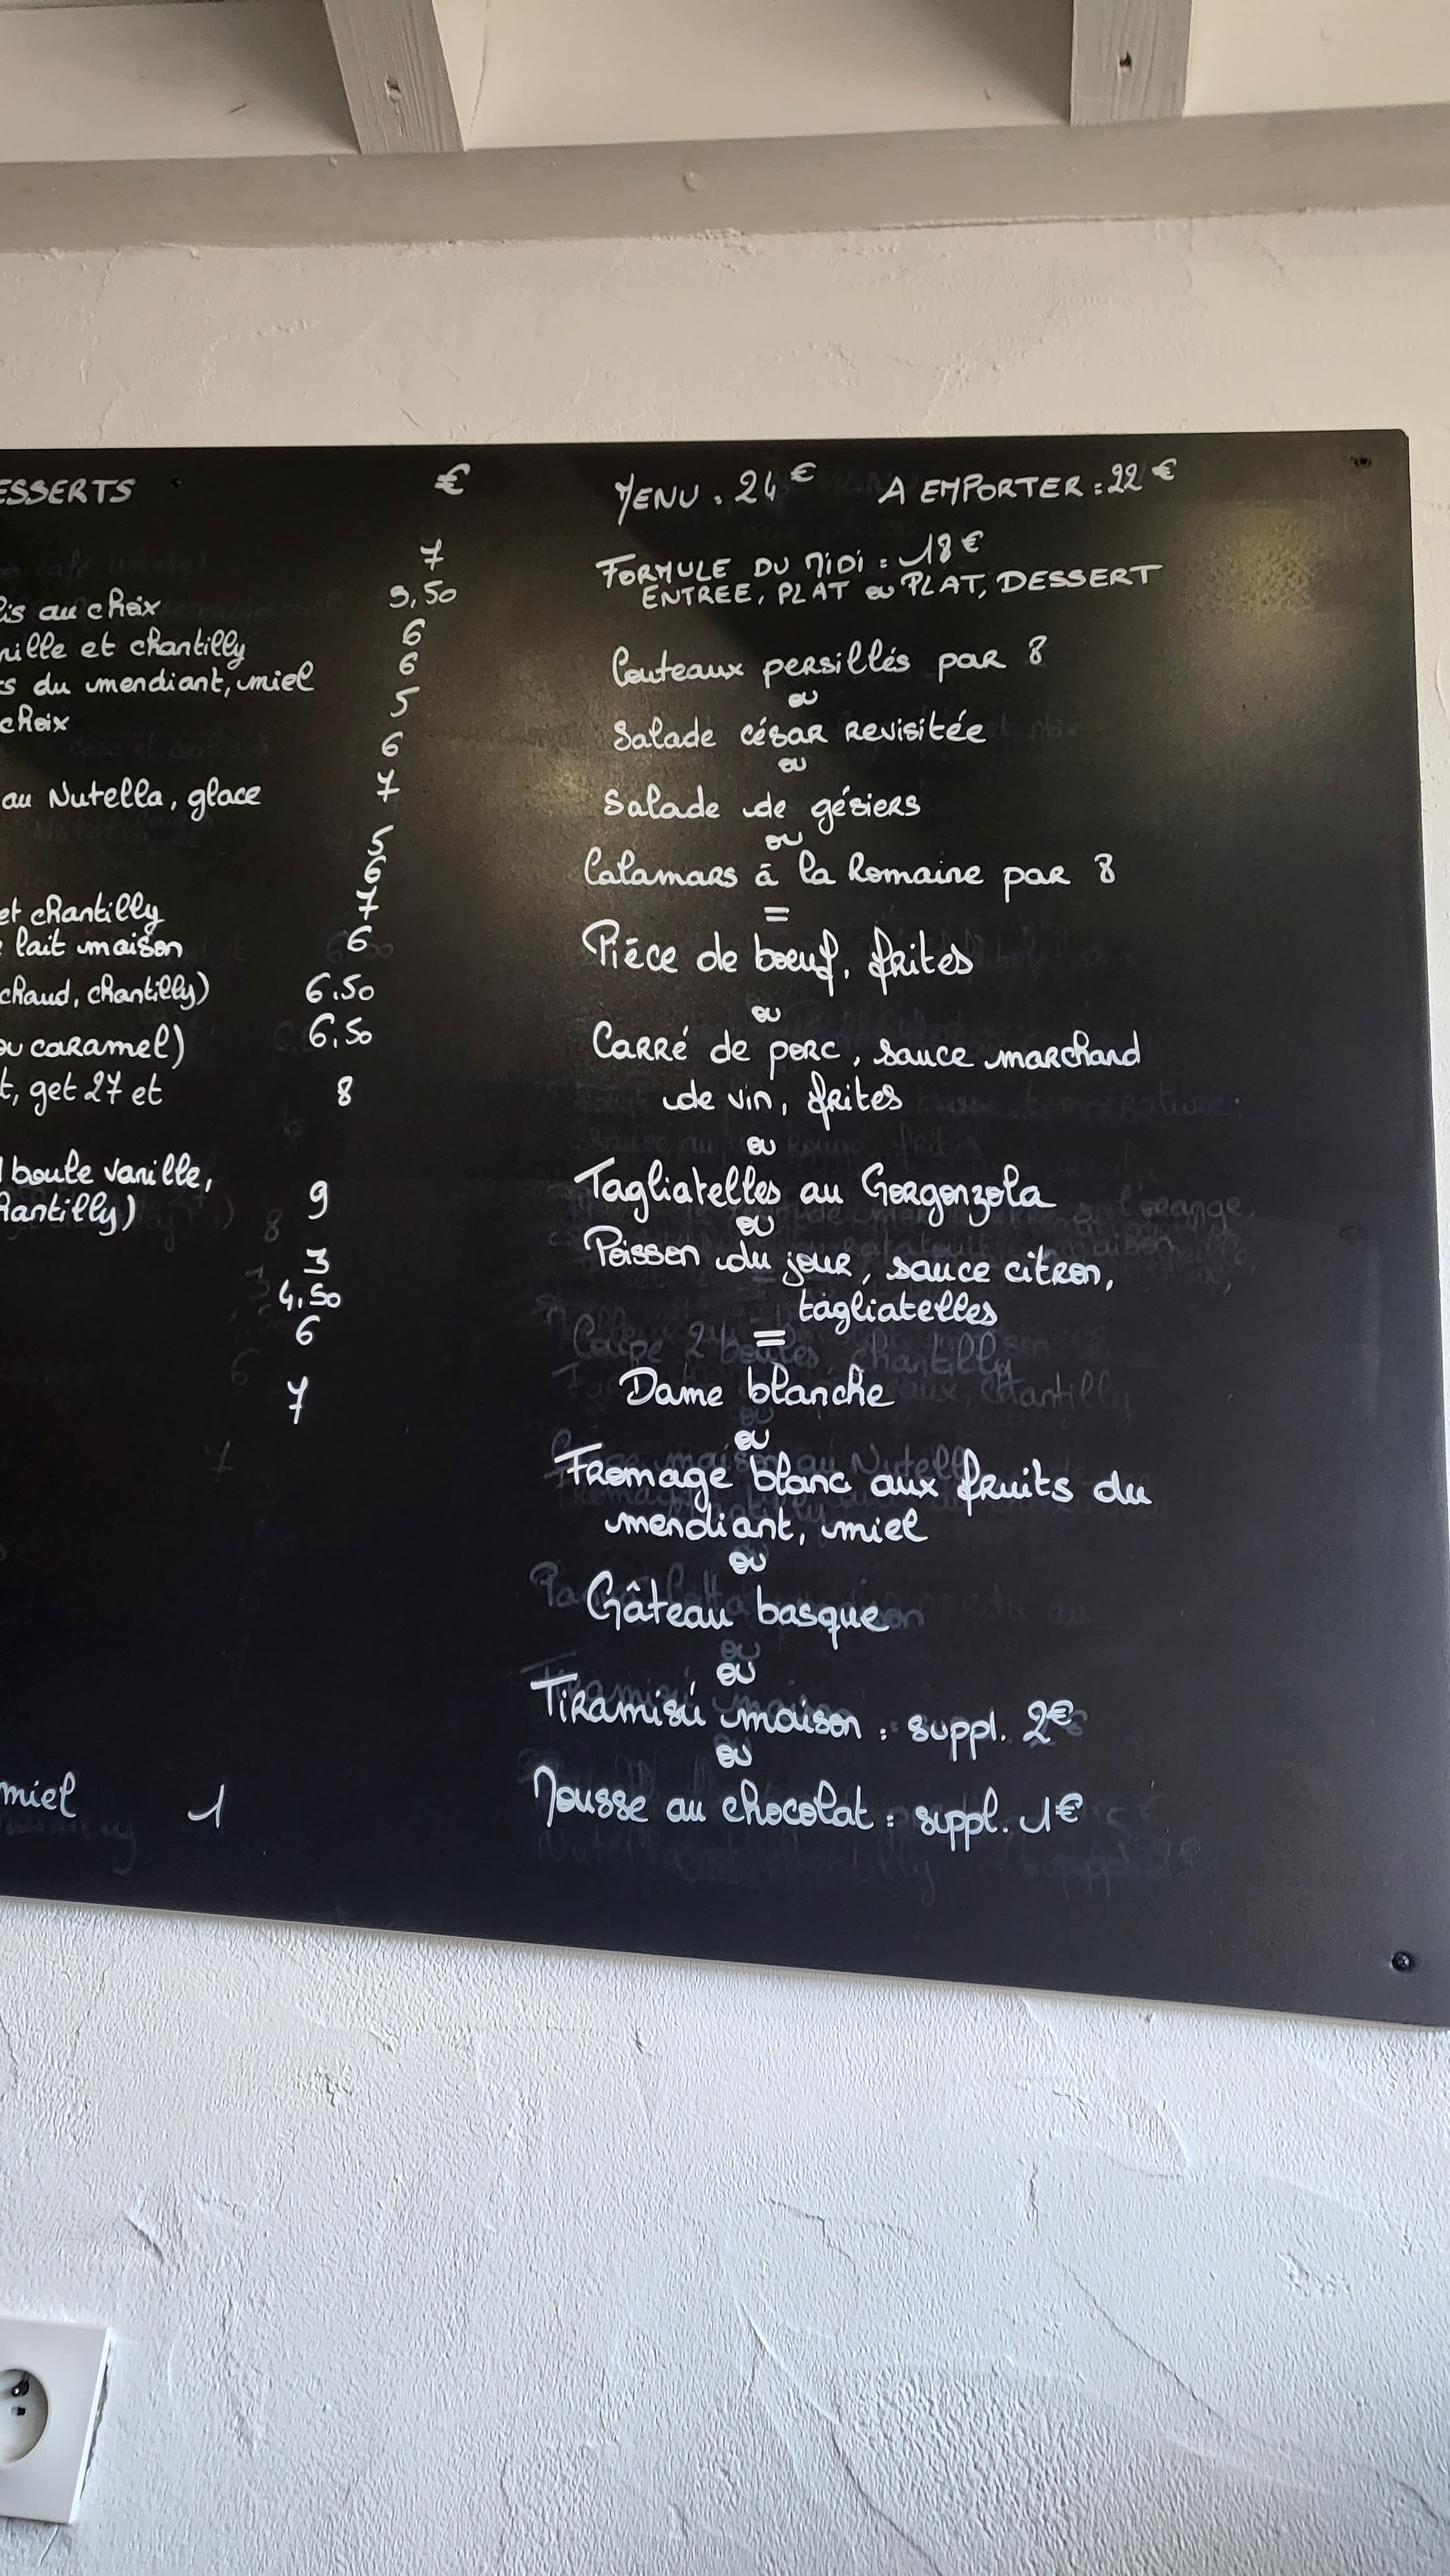 ESSERTS €
7
is au choix 9,50
nille et chantilly 6
s du mendiant, miel 6
choix 5
6
au Nutella, glace 7
5
6
et chantilly 7
lait maison 6
chaud, chantilly) 6.50
ou caramel) 6,50
t, get 27 et 8
1 boule vanille,
hantilly) 9
3
4,50
6
7
miel 1
MENU : 24€ A EMPORTER : 22€
FORMULE DU MIDI : 18€
ENTREE, PLAT ou PLAT, DESSERT
Couteaux persillés par 8
ou
Salade césar revisitée
ou
Salade de gésiers
ou
Calamars à la Romaine par 8
=
Pièce de boeuf, frites
ou
Carré de porc, sauce marchand
de vin, frites
ou
Tagliatelles au Gorgonzola
ou
Poisson du jour, sauce citron,
tagliatelles
=
Dame blanche
ou
Fromage blanc aux fruits du
mendiant, miel
ou
Gâteau basque
ou
Tiramisú maison : suppl. 2€
ou
Mousse au chocolat : suppl. 1€